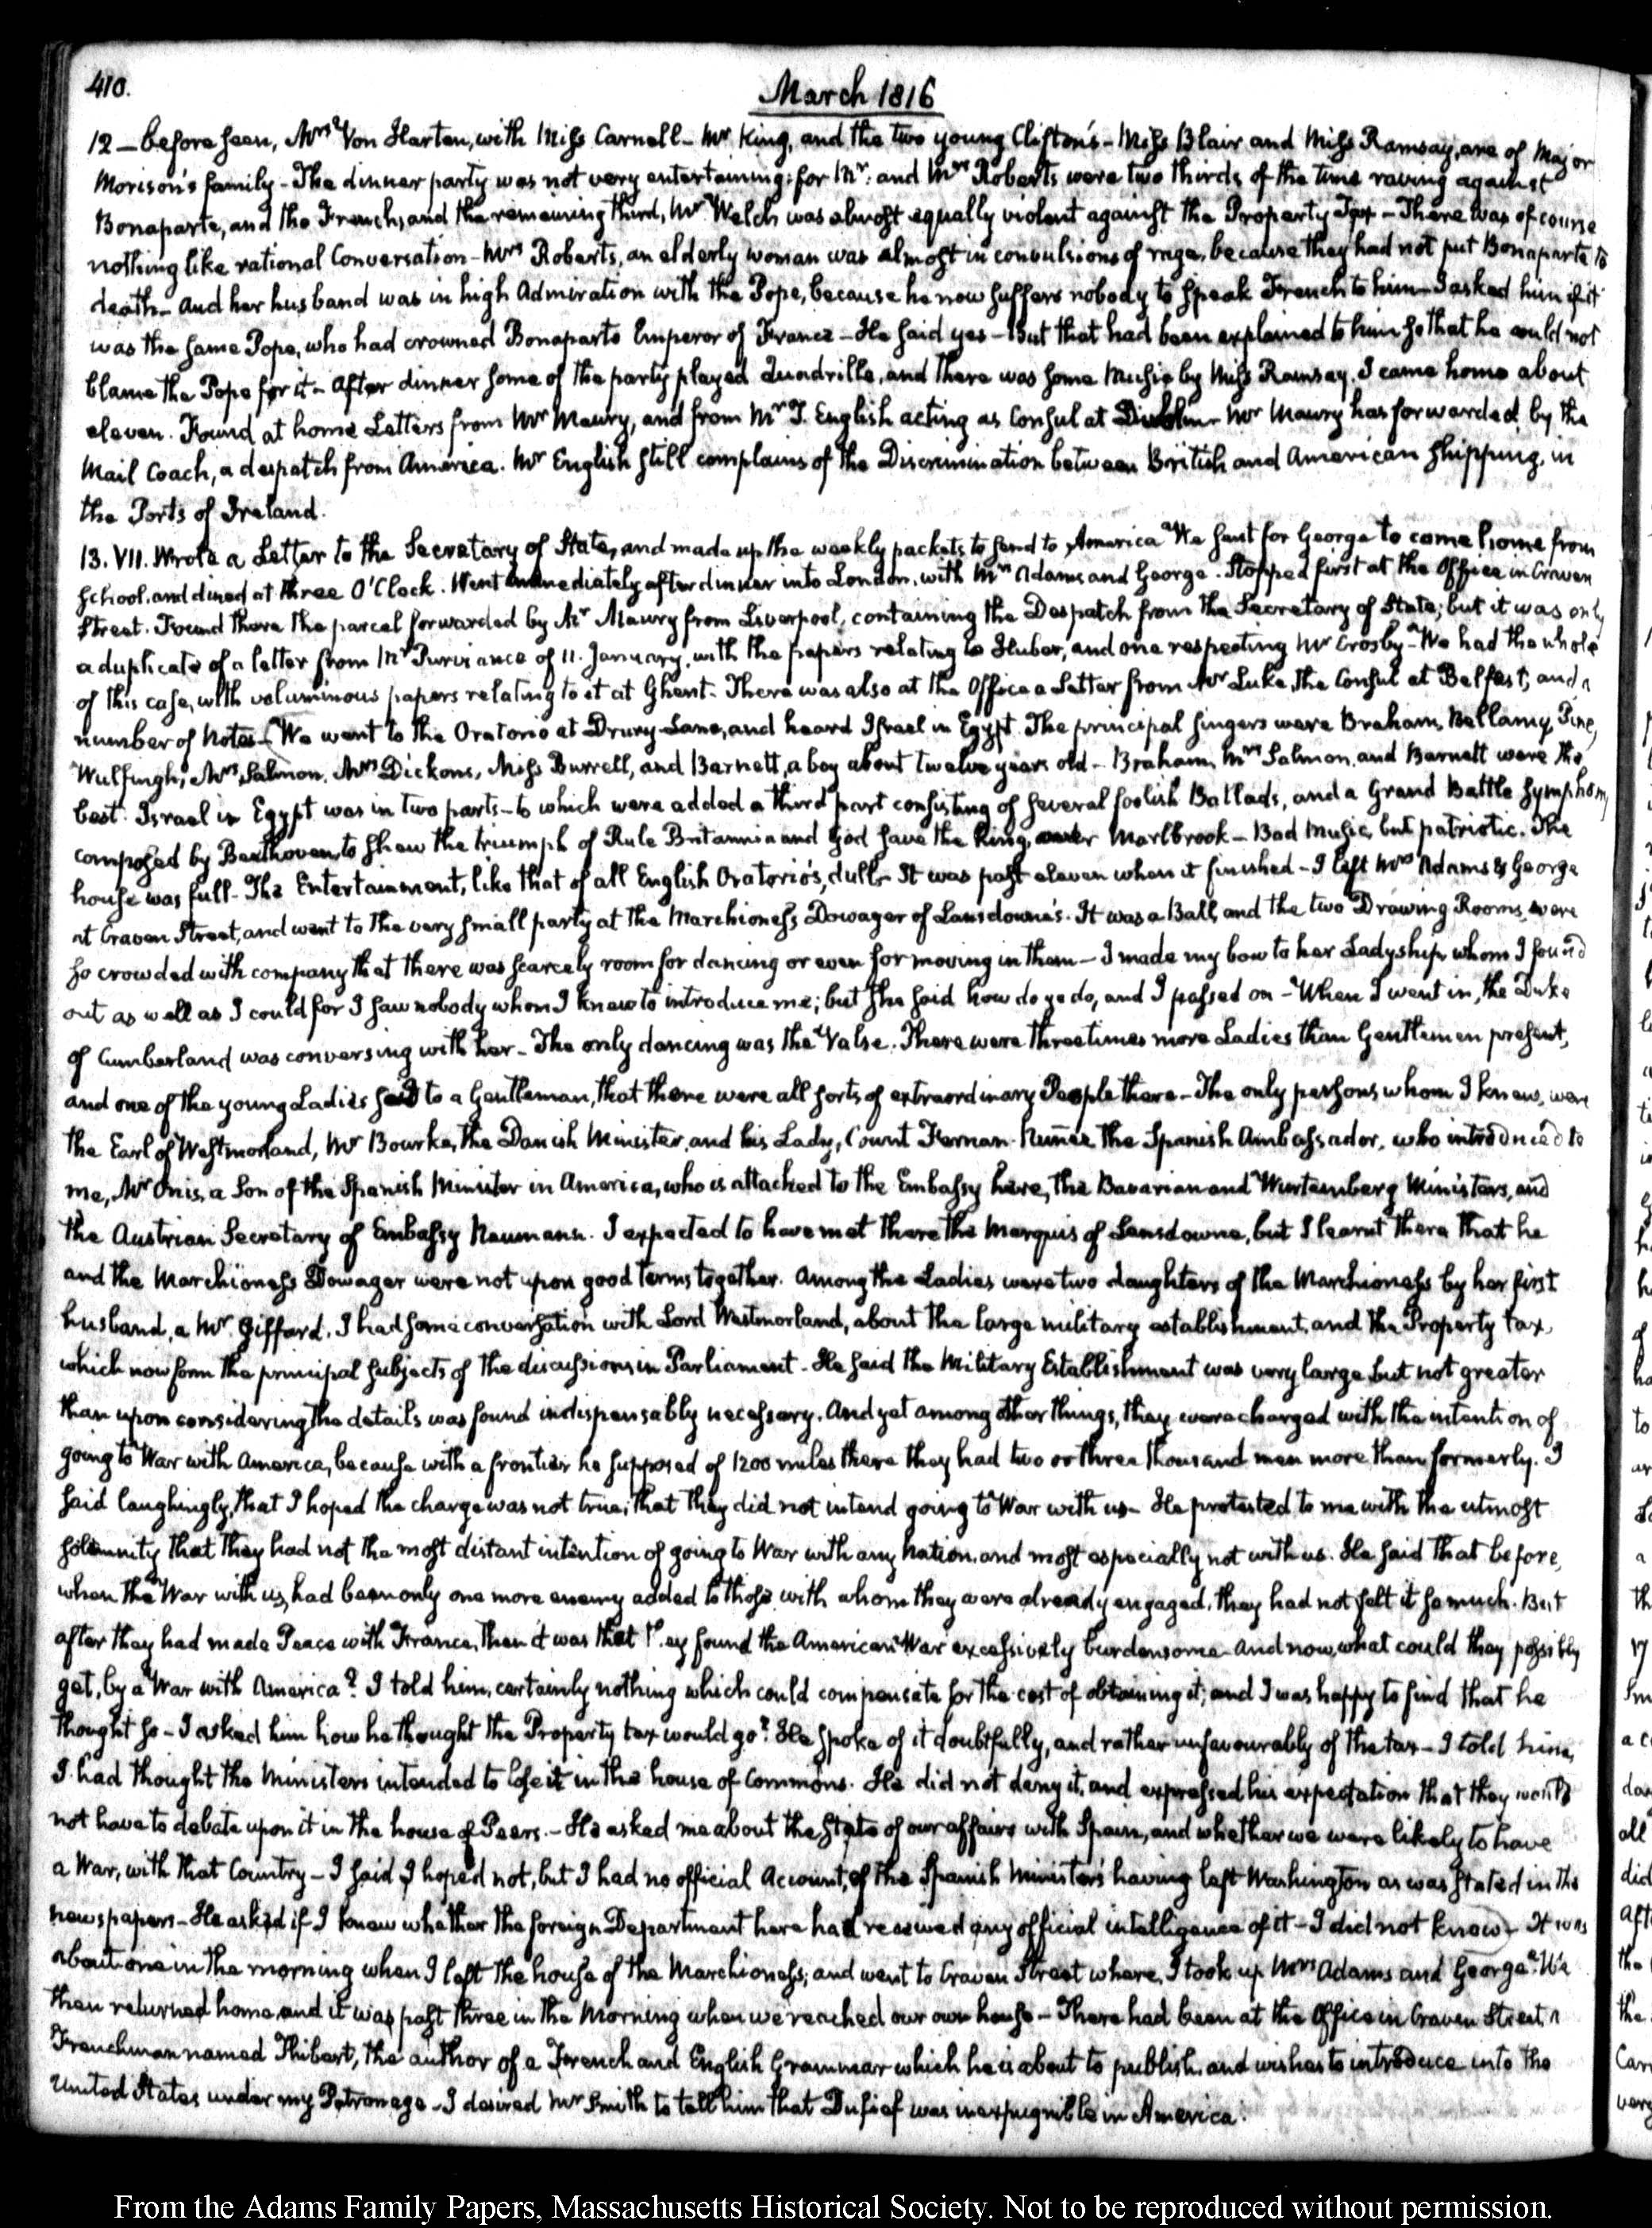 410.
March 1816
12 — before seen, Mrs. Von Harten, with Miss Carnell — Mr King, and the two young Clifton's — Miss Blair and Miss Ramsay, are of Major
Morison's family — The dinner party was not very entertaining; for Mr. and Mrs Roberts were two thirds of the time raving against
Bonaparte, and the French, and the remaining third, Mr. Welch was almost equally violent against the Property Tax — There was of course
nothing like rational Conversation — Mrs Roberts, an elderly woman was almost in convulsions of rage, because they had not put Bonaparte to
death — and her husband was in high Admiration with the Pope, because he now suffers nobody to speak French to him — I asked him if it
was the same Pope, who had crowned Bonaparte Emperor of France — He said yes — But that had been explained to him so that he could not
blame the Pope for it — After dinner some of the party played Quadrille, and there was some Music by Miss Ramsay. I came home about
eleven. Found at home Letters from Mr Maury, and from Mr T. English acting as Consul at Dublin — Mr Maury has forwarded, by the
Mail Coach, a despatch from America. Mr English still complains of the Discrimination between British and American Shipping, in
the Ports of Ireland.
13. VII. Wrote a Letter to the Secretary of State, and made up the weekly packets to send to America. We sent for George to come home from
School, and dined at three O'Clock. Went immediately after dinner into London, with Mrs Adams and George. Stopped first at the Office in Craven
Street. Found there the parcel forwarded by Mr Maury from Liverpool, containing the Despatch from the Secretary of State; but it was only
a duplicate of a letter from Mr Purviance of 11. January, with the papers relating to Huber, and one respecting Mr Crosby — We had the whole
of this case, with voluminous papers relating to it at Ghent — There was also at the Office a Letter from Mr Luke, the Consul at Belfast, and a
number of Notes — We went to the Oratorio at Drury-Lane, and heard Israel in Egypt. The principal singers were Braham, Bellamy, Pine,
Wulfingh, Mrs Salmon, Mrs Dickons, Miss Burrell, and Barnett, a boy about twelve years old — Braham, Mrs Salmon, and Barnett were the
best. Israel in Egypt was in two parts — to which were added a third part consisting of several foolish Ballads, and a Grand Battle Symphony
composed by Beethoven, to shew the triumph of Rule Britannia and God save the King, over Marlbrook — Bad Music, but patriotic. The
house was full — The Entertainment, like that of all English Oratorio's, dull — It was past eleven when it finished — I left Mrs Adams & George
at Craven Street, and went to the very small party at the Marchioness Dowager of Lansdowne's. It was a Ball, and the two Drawing Rooms, were
so crowded with company that there was scarcely room for dancing or even for moving in them — I made my bow to her Ladyship whom I found
out as well as I could for I saw nobody whom I knew to introduce me; but she said how do ye do, and I passed on — When I went in, the Duke
of Cumberland was conversing with her — The only dancing was the Valse. There were three times more Ladies than Gentlemen present,
and one of the young Ladies said to a Gentleman, that there were all sorts of extraordinary People there — The only persons whom I knew, were
the Earl of Westmorland, Mr Bourke, the Danish Minister, and his Lady, Count Fernan Nuñez, the Spanish Ambassador, who introduced to
me, Mr Onis, a Son of the Spanish Minister in America, who is attached to the Embassy here, the Bavarian and Wurtemberg Ministers, and
the Austrian Secretary of Embassy Neumann. I expected to have met there the Marquis of Lansdowne, but I learnt there that he
and the Marchioness Dowager were not upon good terms together. Among the Ladies were two daughters of the Marchioness by her first
husband, a Mr. Gifford. I had some conversation with Lord Westmorland, about the large military establishment, and the Property tax,
which now form the principal subjects of the discussions in Parliament — He said the Military Establishment was very large but not greater
than upon considering the details was found indispensably necessary. And yet among other things, they were charged with the intention of
going to War with America, because with a frontier he supposed of 1200 miles there they had two or three thousand men more than formerly. I
said laughingly, that I hoped the charge was not true; that they did not intend going to War with us — He protested to me with the utmost
solemnity that they had not the most distant intention of going to War with any Nation, and most especially not with us. He said that before,
when the War with us, had been only one more enemy added to those with whom they were already engaged, they had not felt it so much. But
after they had made Peace with France, then it was that they found the American War excessively burdensome. And now, what could they possibly
get, by a War with America? I told him, certainly nothing which could compensate for the cost of obtaining it; and I was happy to find that he
thought so — I asked him how he thought the Property tax would go? He spoke of it doubtfully, and rather unfavourably of the tax — I told him,
I had thought the Ministers intended to lose it in the house of Commons. He did not deny it, and expressed his expectation that they would
not have to debate upon it in the house of Peers. — He asked me about the State of our affairs with Spain, and whether we were likely to have
a War, with that Country — I said I hoped not, but I had no official Account, of the Spanish Minister's having left Washington as was stated in the
newspapers — He asked if I knew whether the foreign Department here had received any official intelligence of it — I did not know — It was
about one in the morning when I left the house of the Marchioness, and went to Craven Street where, I took up Mrs Adams and George. We
then returned home and it was past three in the Morning when we reached our own house — There had been at the Office in Craven Street a
Frenchman named Thibert, the author of a French and English Grammar which he is about to publish and wishes to introduce into the
United States under my Patronage — I desired Mr Smith to tell him that Dufief was inexpugnible in America.
From the Adams Family Papers, Massachusetts Historical Society. Not to be reproduced without permission.